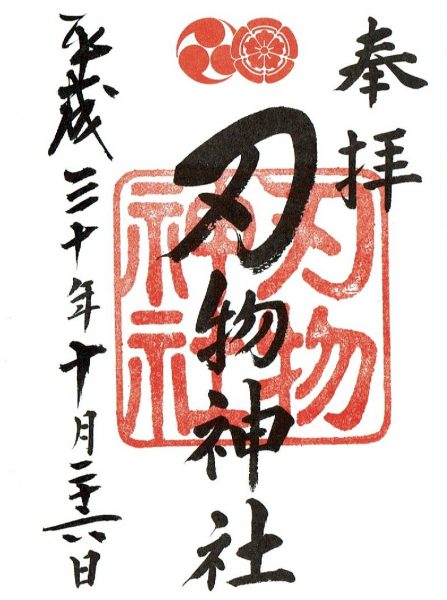 奉拝
刃物神社
刃物
神社
平成三十年十月二十六日